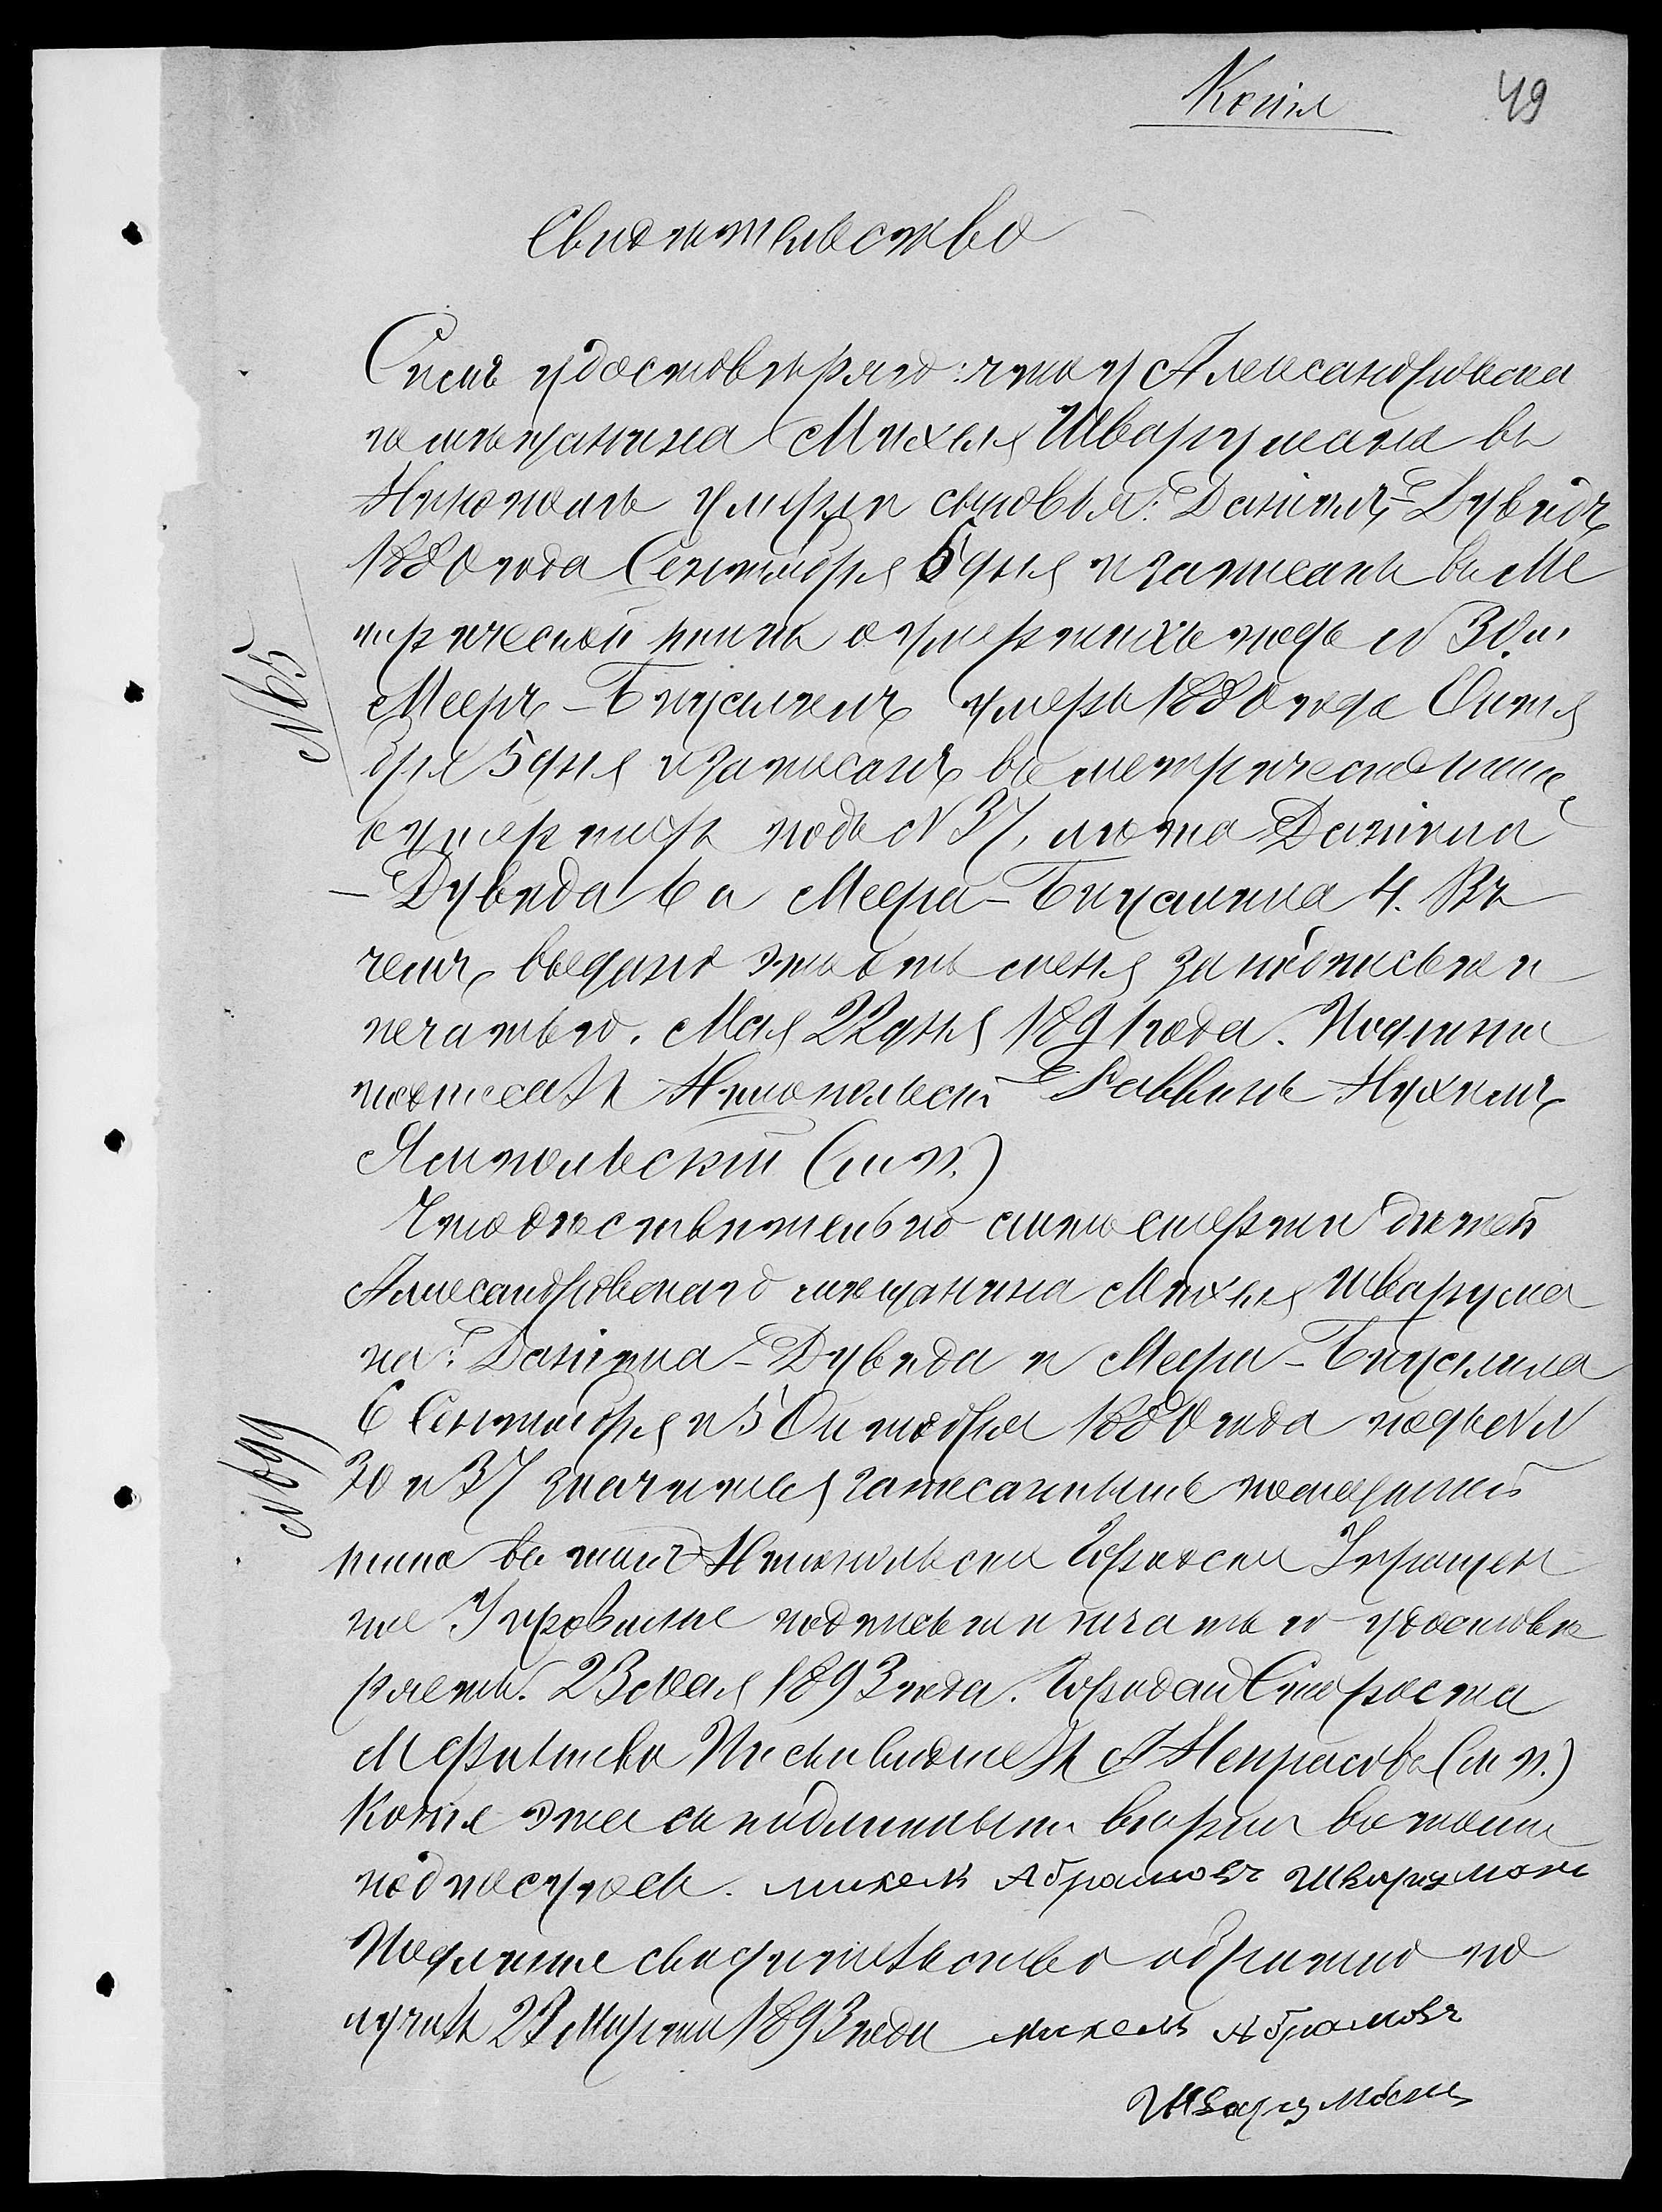 Копія
49
Свидѣтельство
Симъ удостовѣряю: что у Александровска
го мѣщанина Михеля Шварцмана въ
Никополѣ умерли сыновья: Даніилъ-Дувидъ
1880 года Сентября 6 дня и записанъ въ Ме
трической книгѣ о умершихъ подъ N 30. и
Мееръ-Бицалелъ умеръ 1880 года Октя
бря 5 дня и записанъ въ метрической книгѣ
о умершихъ подъ N 37, лѣта Даніила
-Дувида 6 а Меера- 4. Въ
чемъ выдано это отъ меня за подписью и
печатью. Мая 22 дня 1891 года. Подлинное
подписалъ Никопольскій Раввинъ Нухимъ
Ямпольскій (м. п.)
Что дѣйствительно смерти дѣтей
Александровскаго мѣщанина Михеля Шварцма
на: Даніила-Дувида и Меера-
6 Сентября и 5 Октября 1880 года подъ NN
30 и 37 значится записанными по метрической
книгѣ въ томъ Никопольское Городское Упрощен
ное Управленіе подписью и печатью удостовѣ
ряетъ. 23 Мая 1893 года. Городской Староста
Письмоводитель А Некрасовъ (м. п.)
Копія эта съ подлиннымъ вѣрна въ томъ
подписуюсь. михель Абрамовъ Шварцманъ
Подлинное свидѣтельство обратно по
лучилъ 1893 года михель Абрамовъ
Шварцманъ
N 65
N 699